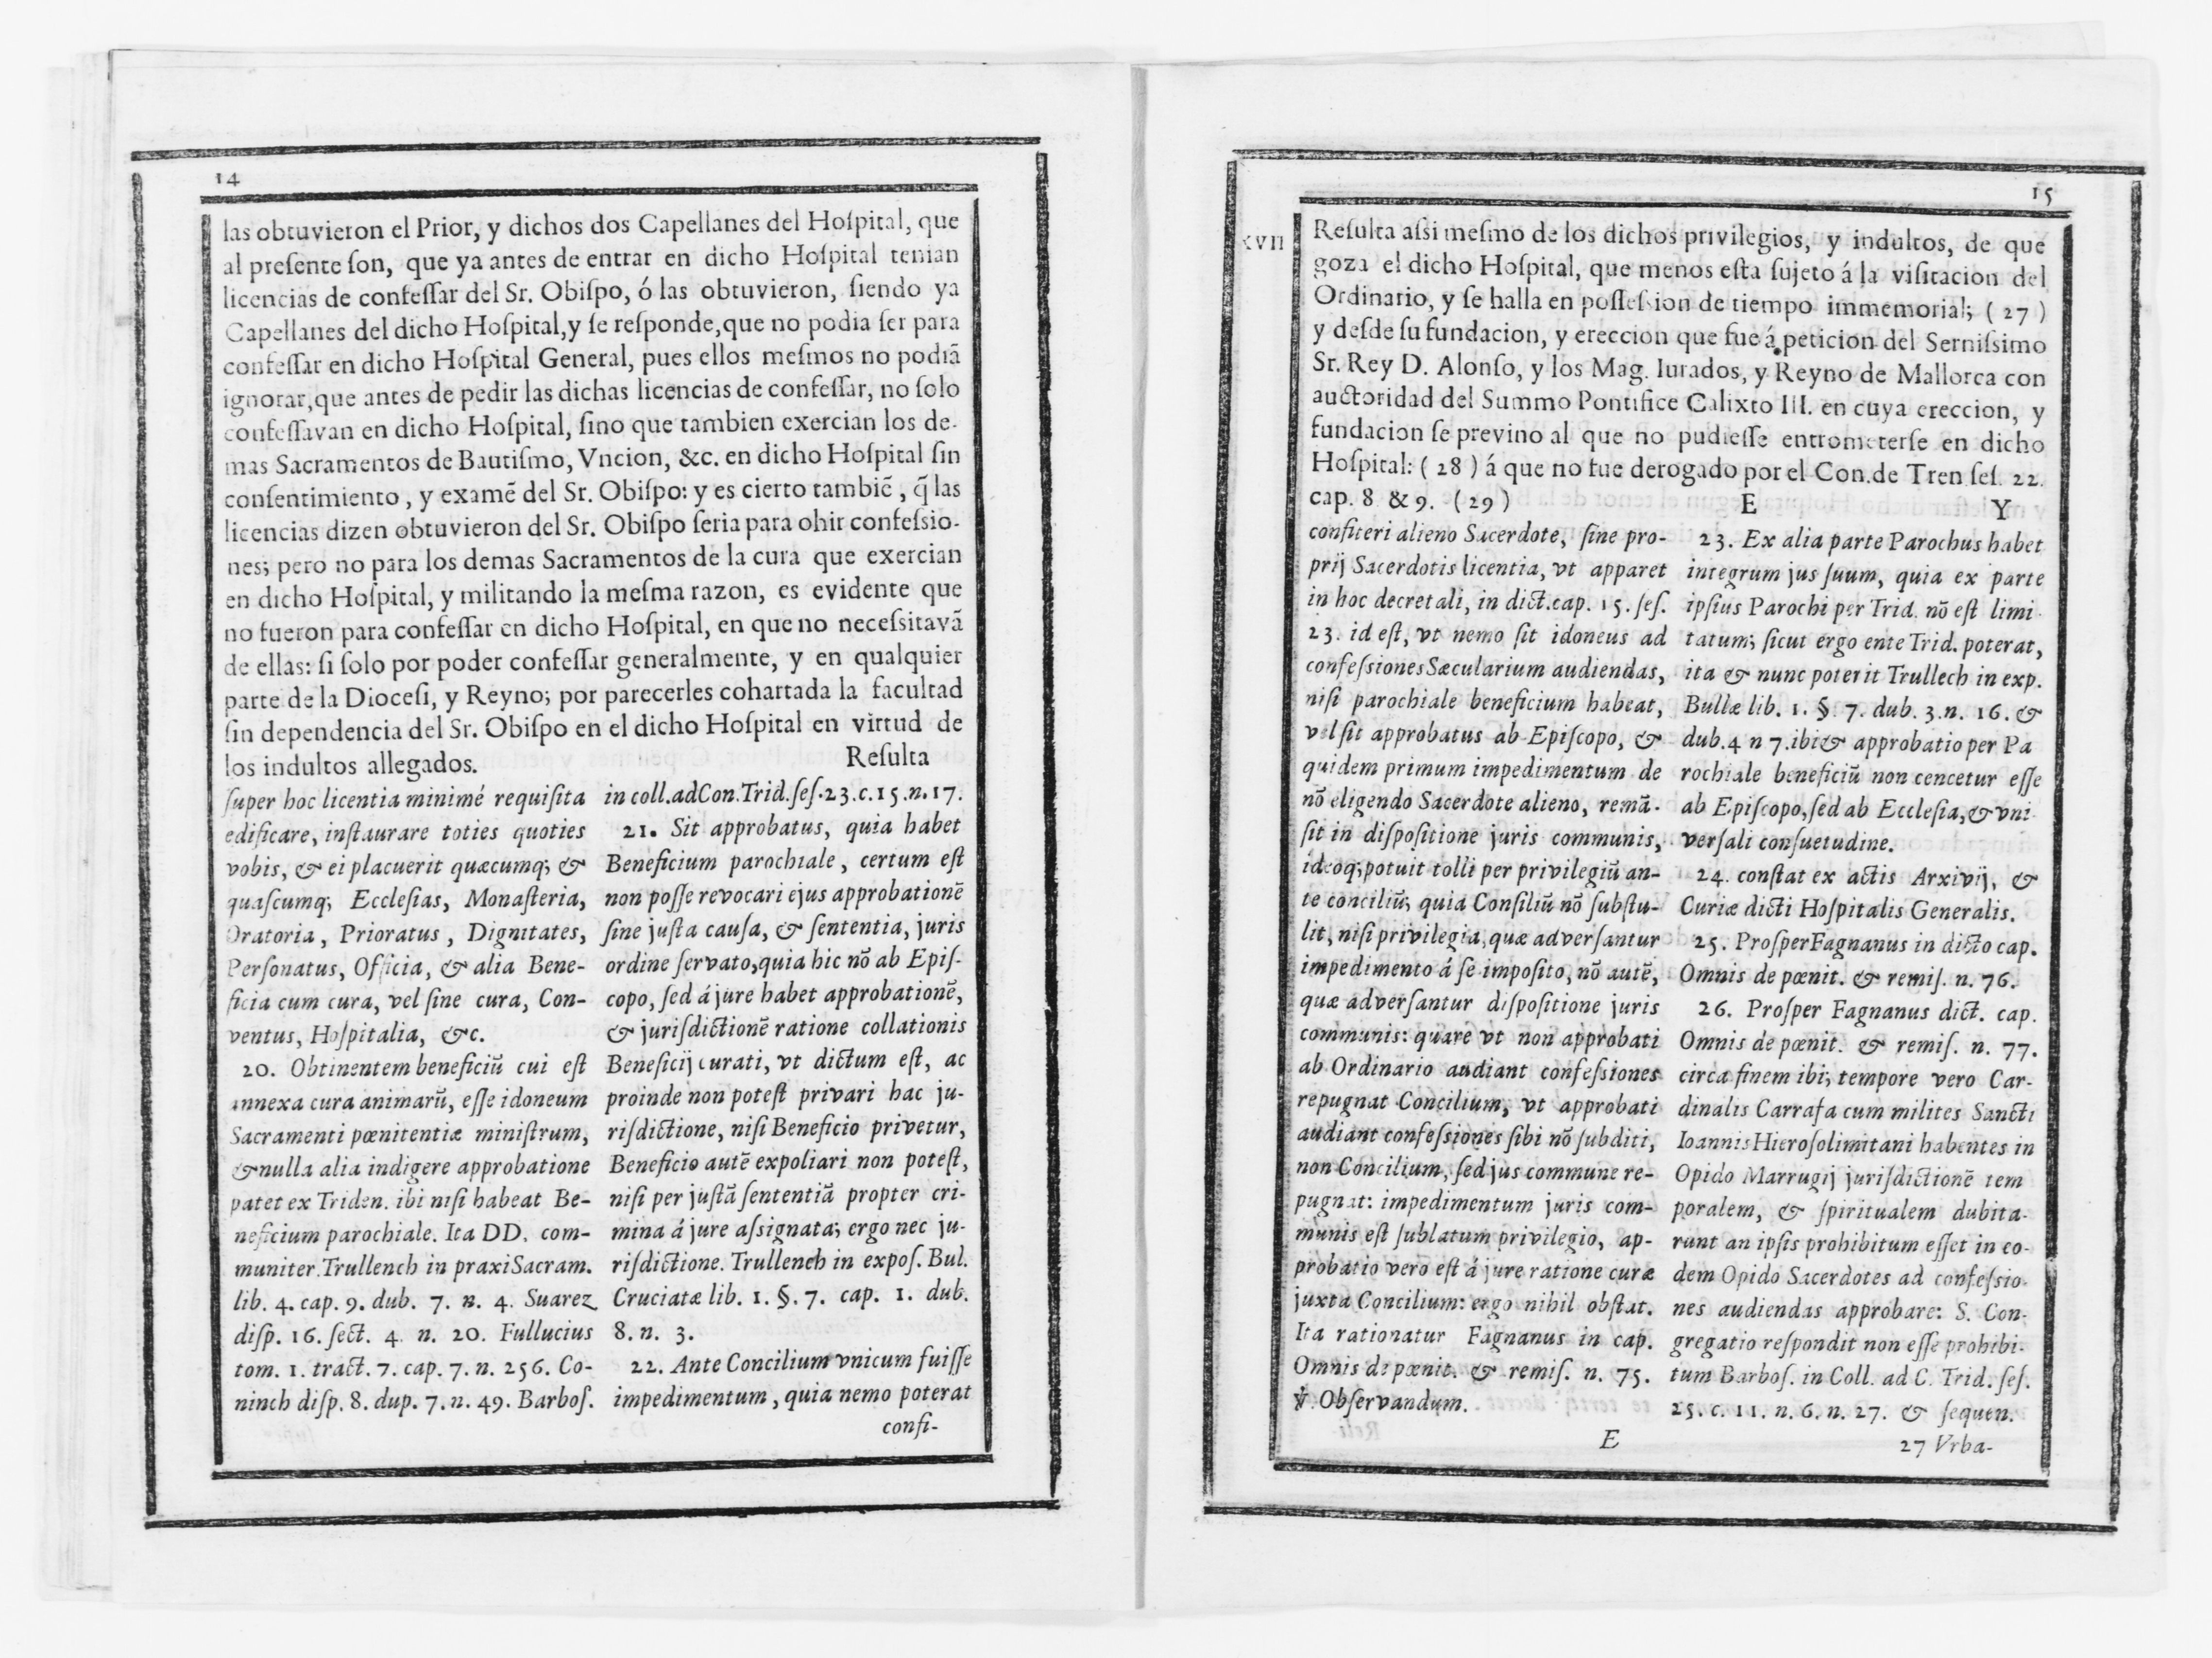 14
las obtuvieron el Prior, y dichos dos Capellanes del Hoſpital, que
al preſente ſon, que ya antes de entrar en dicho Hoſpital tenian
licencias de confeſſar del Sr. Obiſpo, ó las obtuvieron, ſiendo ya
Capellanes del dicho Hoſpital,y ſe reſponde,que no podia ſer para
confeſſar en dicho Hoſpital General, pues ellos meſmos no podiã
ignorar,que antes de pedir las dichas licencias de confeſſar, no ſolo
confeſſavan en dicho Hoſpital, ſino que tambien exercian los de-
mas Sacramentos de Bautiſmo, Vncion, &c. en dicho Hoſpital ſin
conſentimiento, y examẽ del Sr. Obiſpo: y es cierto tambiẽ, q̃ las
licencias dizen obtuvieron del Sr. Obiſpo ſeria para ohir confeſsio-
nes; pero no para los demas Sacramentos de la cura que exercian
en dicho Hoſpital, y militando la meſma razon, es evidente que
no fueron para confeſſar en dicho Hoſpital, en que no neceſsitavã
de ellas: ſi ſolo por poder confeſſar generalmente, y en qualquier
parte de la Dioceſi, y Reyno; por parecerles cohartada la facultad
ſin dependencia del Sr. Obiſpo en el dicho Hoſpital en virtud de
los indultos allegados. Reſulta
ſuper hoc licentia minimé requiſita
edificare, inſtaurare toties quoties
vobis, & ei placuerit quæcumq; &
quaſcumq; Eccleſias, Monaſteria,
Oratoria, Prioratus, Dignitates,
Perſonatus, Officia, & alia Bene-
ficia cum cura, vel ſine cura, Con-
ventus, Hoſpitalia, &c.
20. Obtinentem beneficiũ cui eſt
annexa cura animarũ, eſſe idoneum
Sacramenti pœnitentiæ miniſtrum,
& nulla alia indigere approbatione
patet ex Triden. ibi niſi habeat Be-
neficium parochiale. Ita DD. com-
muniter.Trullench in praxi Sacram.
lib. 4. cap. 9. dub. 7. n. 4. Suarez
diſp. 16. ſect. 4 n. 20. Fullucius
tom. 1. tract. 7. cap. 7. n. 256. Co-
ninch diſp. 8. dup. 7. n. 49. Barboſ.
in coll.adCon.Trid.ſeſ.23.c.15.n.17.
21. Sit approbatus, quia habet
Beneficium parochiale, certum eſt
non poſſe revocari ejus approbationẽ
ſine juſta cauſa, & ſententia, juris
ordine ſervato,quia hic nõ ab Epiſ-
copo, ſed á jure habet approbationẽ,
& juriſdictionẽ ratione collationis
Beneficij curati, vt dictum eſt, ac
proinde non poteſt privari hac ju-
riſdictione, niſi Beneficio privetur,
Beneficio autẽ expoliari non poteſt,
niſi per juſtã ſententiã propter cri-
mina á jure aſsignata; ergo nec ju-
riſdictione. Trullench in expoſ. Bul.
Cruciatæ lib. 1. §. 7. cap. 1. dub.
8. n. 3.
22. Ante Concilium vnicum fuiſſe
impedimentum, quia nemo poterat
confi-
15
XVII
Reſulta aſsi meſmo de los dichos privilegios, y indultos, de que
goza el dicho Hoſpital, que menos eſta ſujeto á la viſitacion del
Ordinario, y ſe halla en poſſeſsion de tiempo immemorial; (27)
y deſde ſu fundacion, y ereccion que fue á peticion del Serniſsimo
Sr. Rey D. Alonſo, y los Mag. Iurados, y Reyno de Mallorca con
auctoridad del Summo Pontifice Calixto III. en cuya ereccion, y
fundacion ſe previno al que no pudieſſe entrometerſe en dicho
Hoſpital: (28) á que no fue derogado por el Con.de Tren ſeſ. 22.
cap. 8 & 9. (29) E Y
confiteri alieno Sacerdote, ſine pro-
prij Sacerdotis licentia, vt apparet
in hoc decretali, in dict.cap. 15. ſeſ.
23. id eſt, vt nemo ſit idoneus ad
confeſsiones Sæcularium audiendas,
niſi parochiale beneficium habeat,
vel ſit approbatus ab Epiſcopo, &
quidem primum impedimentum de
nõ eligendo Sacerdote alieno, remã-
ſit in diſpoſitione juris communis,
ideoq; potuit tolli per privilegiũ an-
te conciliũ; quia Conſiliũ nõ ſubſtu-
lit, niſi privilegia, quæ adverſantur
impedimento á ſe impoſito, nõ autẽ,
quæ adverſantur diſpoſitione juris
communis: quare vt non approbati
ab Ordinario audiant confeſsiones
repugnat Concilium, vt approbati
audiant confeſsiones ſibi nõ ſubditi,
non Concilium, ſed jus commune re-
pugnat: impedimentum juris com-
munis eſt ſublatum privilegio, ap-
probatio vero eſt á jure ratione curæ
juxta Concilium: ergo nihil obſtat.
Ita rationatur Fagnanus in cap.
Omnis de pœnit. & remiſ. n. 75.
℣. Obſervandum.
23. Ex alia parte Parochus habet
integrum jus ſuum, quia ex parte
ipſius Parochi per Trid. nõ eſt limi-
tatum; ſicut ergo ente Trid. poterat,
ita & nunc poterit Trullech in exp.
Bullæ lib. 1. §. 7. dub. 3.n. 16. &
dub.4 n 7.ibi & approbatio per Pa
rochiale beneficiũ non cencetur eſſe
ab Epiſcopo,ſed ab Eccleſia,& vni-
verſali conſuetudine.
24. conſtat ex actis Arxivij, &
Curiæ dicti Hoſpitalis Generalis.
25. Proſper Fagnanus in dicto cap.
Omnis de pœnit. & remiſ. n. 76.
26. Proſper Fagnanus dict. cap.
Omnis de pœnit. & remiſ. n. 77.
circa finem ibi; tempore vero Car-
dinalis Carrafa cum milites Sancti
Ioannis Hieroſolimitani habentes in
Opido Marrugij juriſdictionẽ tem
poralem, & ſpiritualem dubita-
runt an ipſis prohibitum eſſet in eo-
dem Opido Sacerdotes ad confeſsio-
nes audiendas approbare: S. Con-
gregatio reſpondit non eſſe prohibi-
tum Barboſ. in Coll. ad C. Trid. ſeſ.
25. c. 11. n. 6. n. 27. & ſequen.
E 27 Vrba-